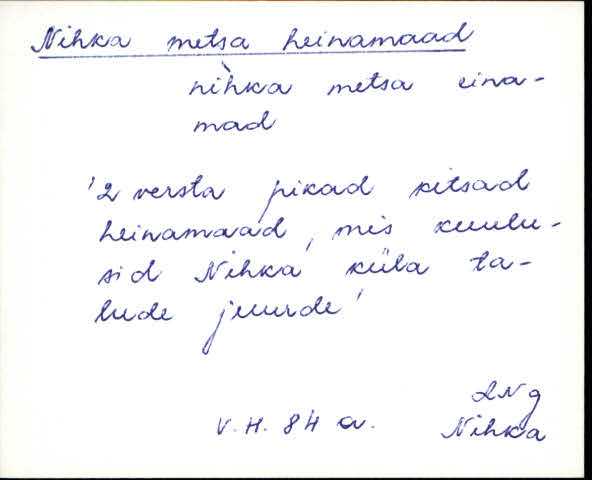 Nihka metsa heinamaad
nìhka metsa eina-
mad
'2 versta pikad kitsad
heinamaad, mis kuulu-
sid Nihka küla ta-
lude juurde'
LNg
V. H. 84 a. Nihka